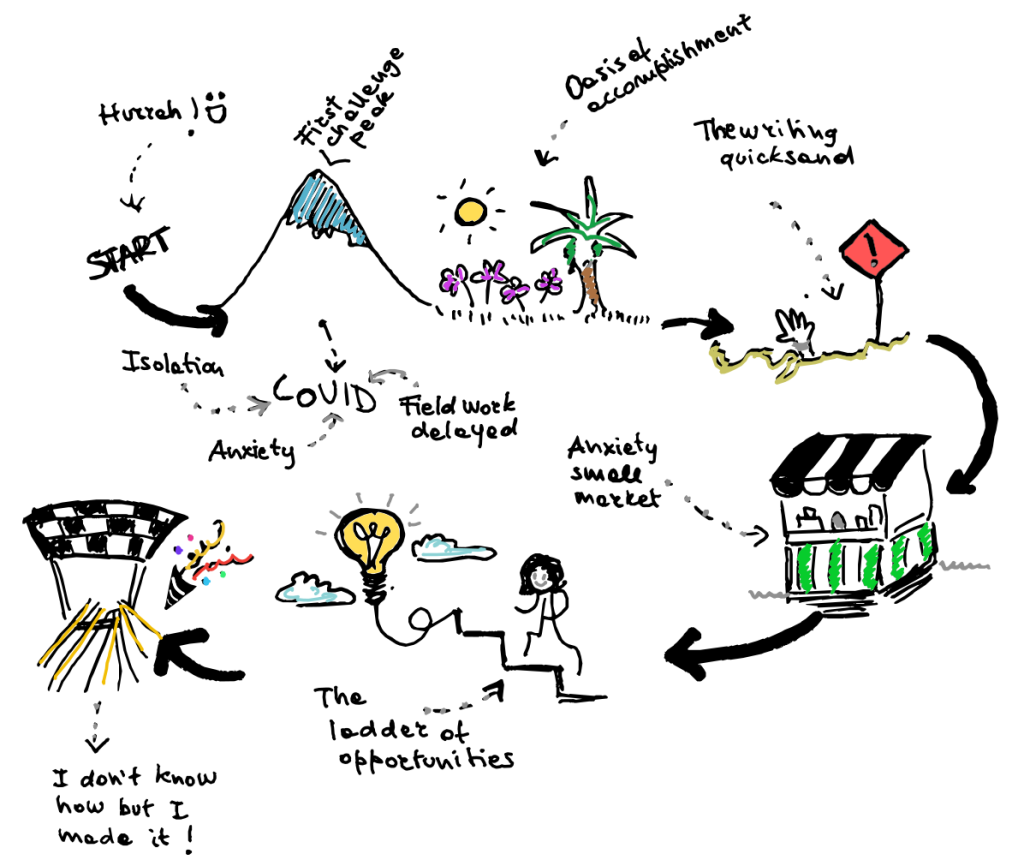 Hurrah!
START
First
challenge
peak
Oasis of
accomplishment
The writing
quicksand
!
Isolation
COVID
Anxiety
Field work
delayed
Anxiety
small
market
The
ladder of
opportunities
I don't know
how but I
made it!